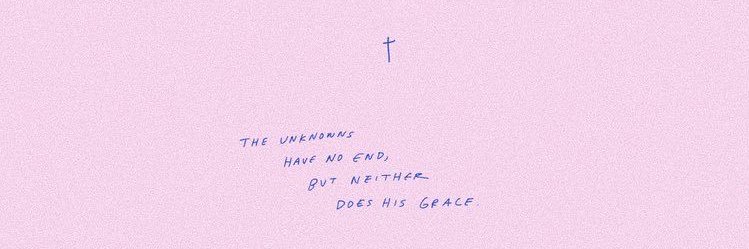 THE UNKNOWNS
HAVE NO END,
BUT NEITHER
DOES HIS GRACE.